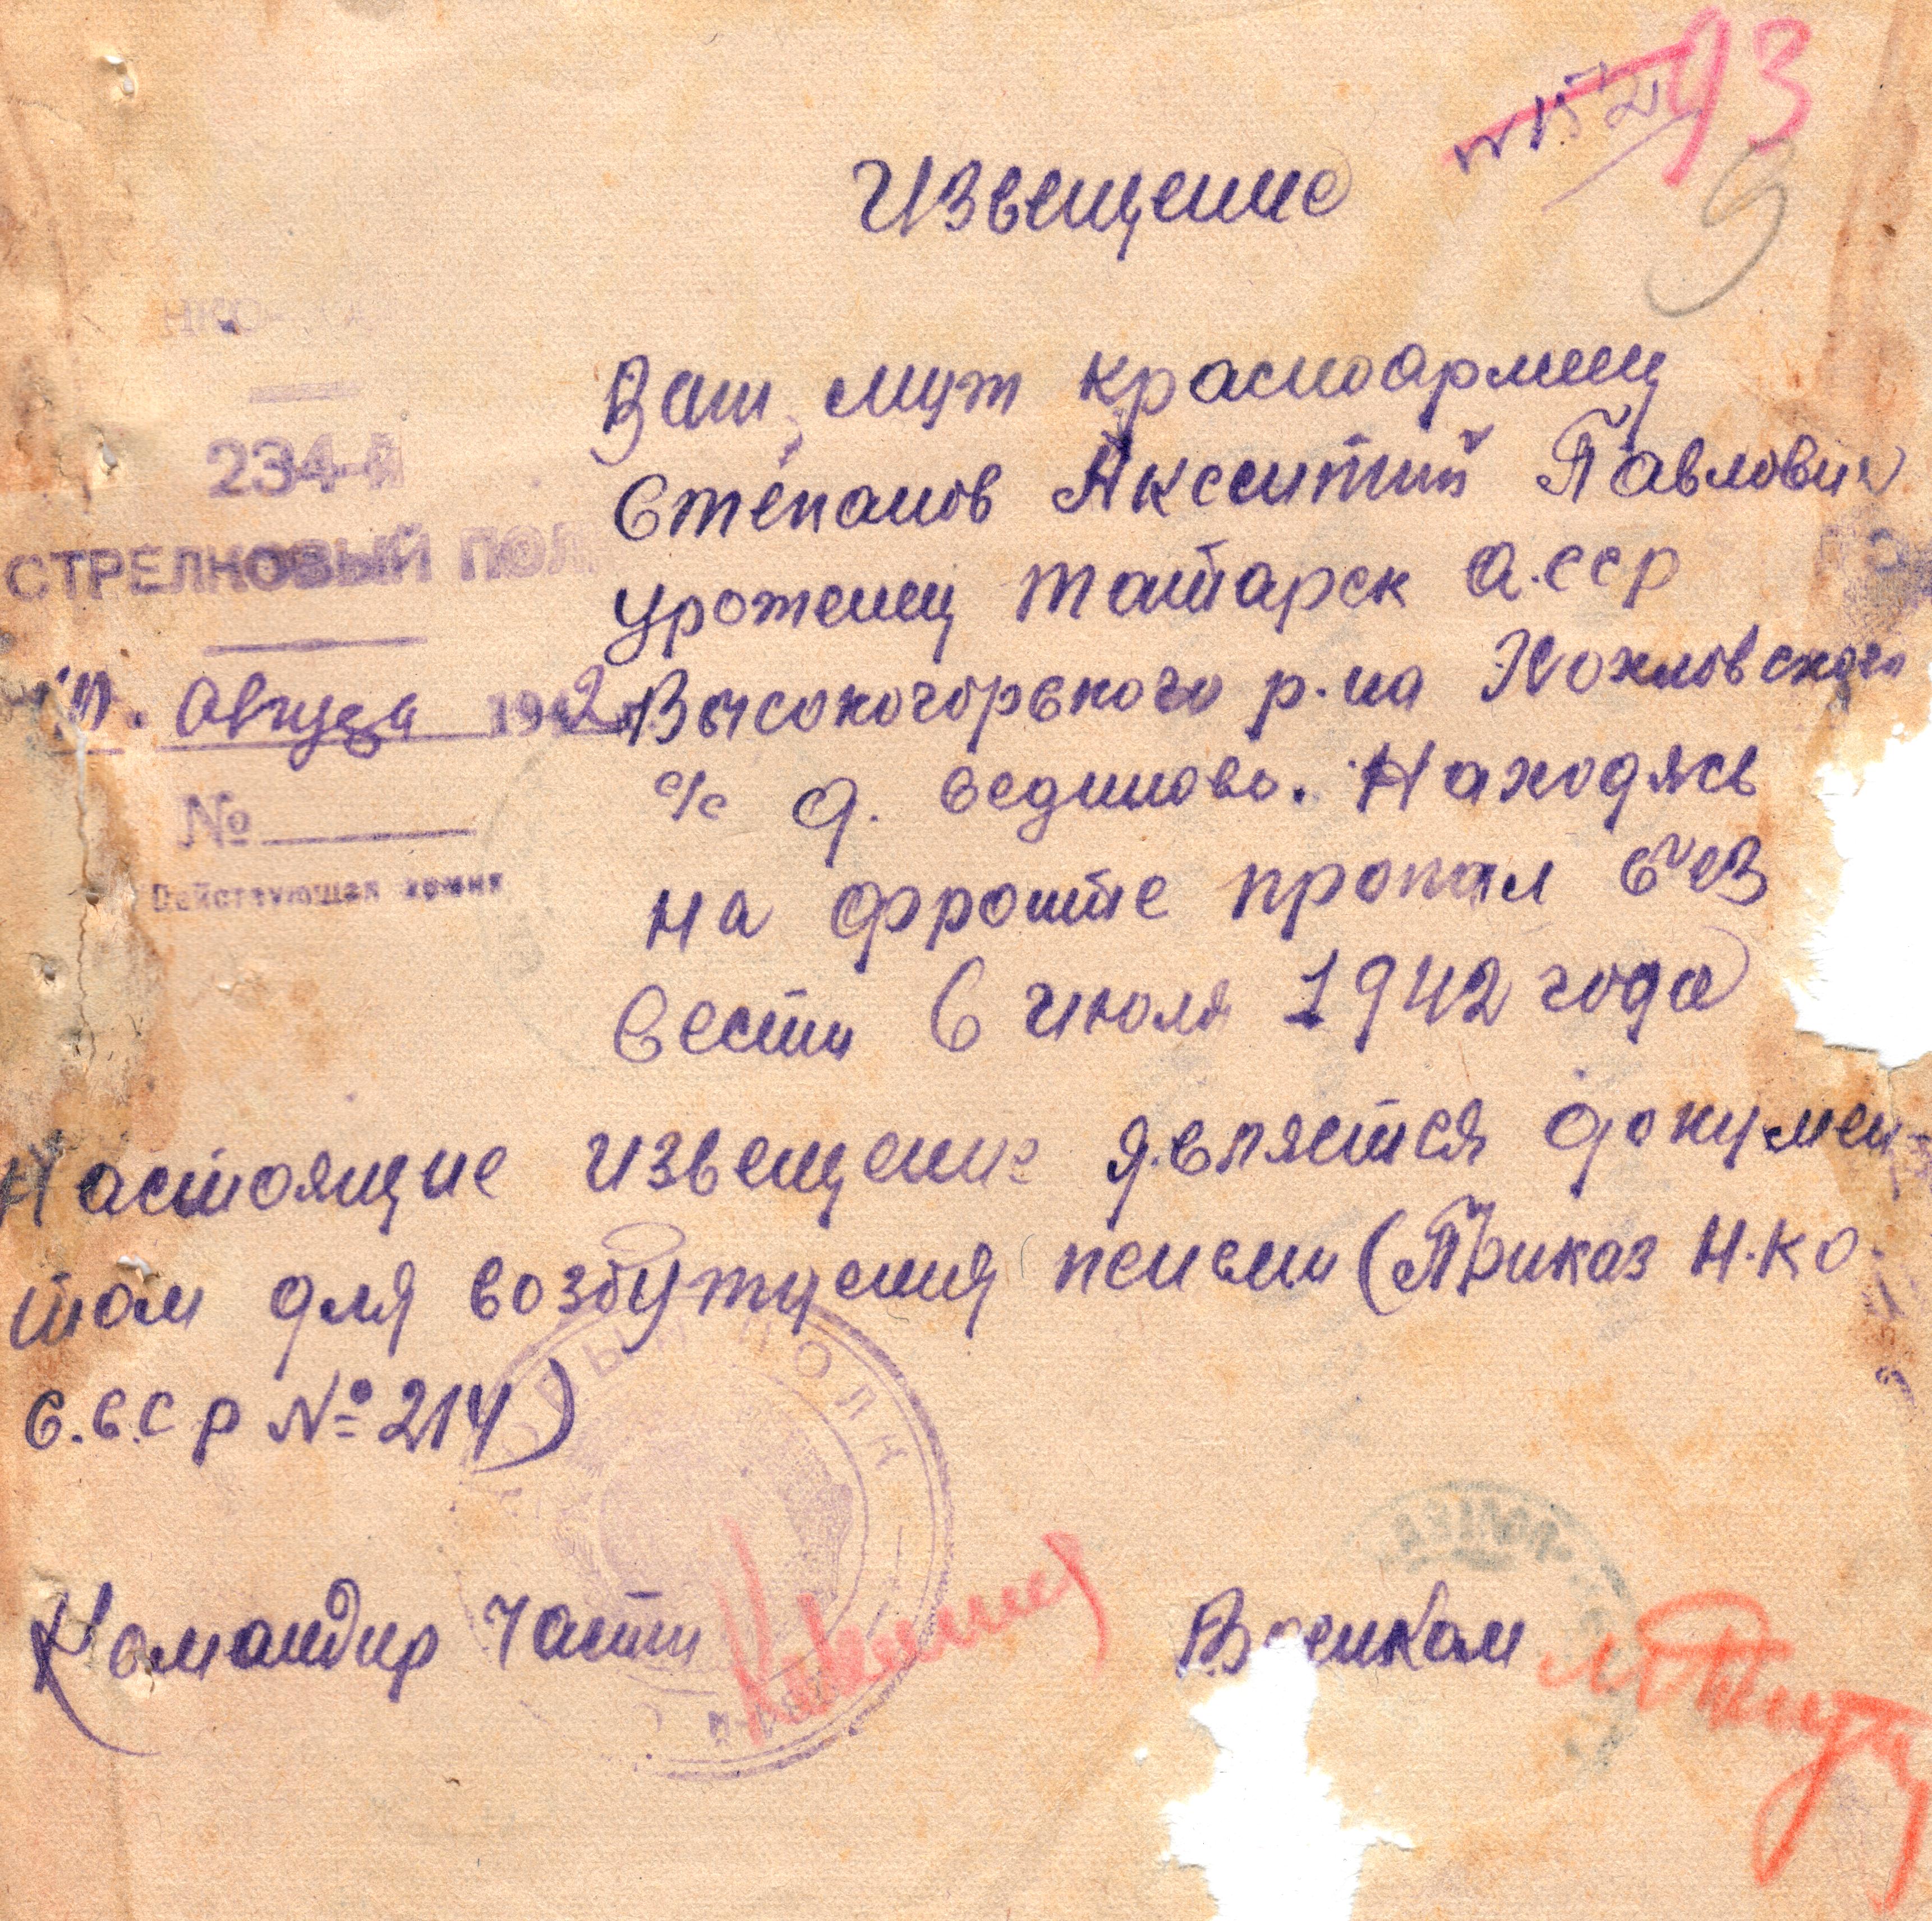 № 152
93
9
Извещение
НКО
234-й
СТРЕЛКОВЫЙ ПОЛ
августа 1942
№
Действующая армия
Ваш муж красноармеец
Степанов Аксентий Павлович
уроженец Татарск А.ССР
Высокогорского р-на Хохловского
с/с д. Сединово. Находясь
на фронте пропал без
вести 6 июля 1942 года
Настоящие извещение является докумен-
том для возбужцения пенсии (Приказ Н.КО.
С.С.С р № 214)
ОВЫЙ ПОЛК
Командир части
Военком